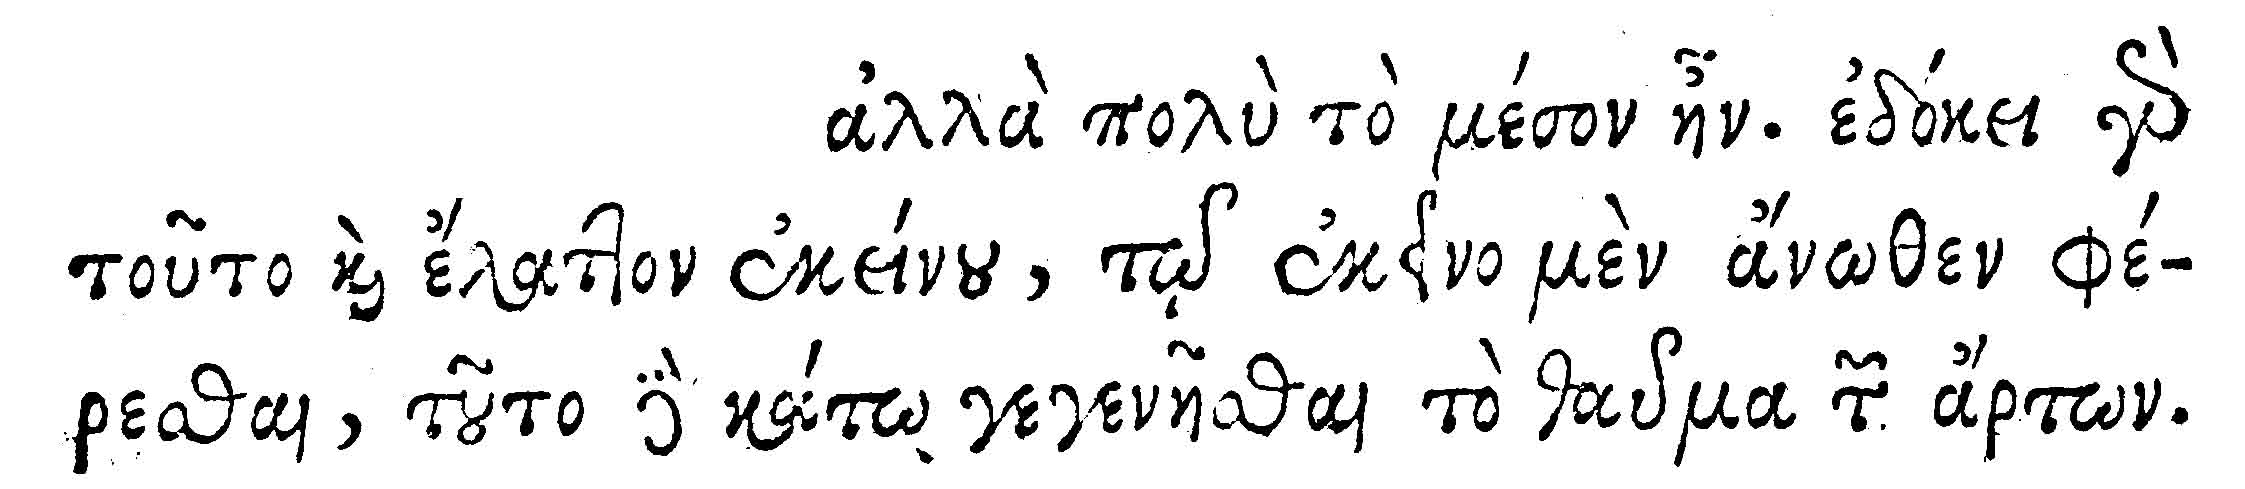 ἀλλὰ πολὺ τὸ μέσον ἦν. ἐδόκει γὰρ
τοῦτο καὶ ἔλαττον ἐκείνου, τῷ ἐκεῖνο μὲν ἄνωθεν φέ-
ρεσθαι, τοῦτο δὲ κάτω γεγενῆσθαι τὸ θαῦμα τῶν ἄρτων.